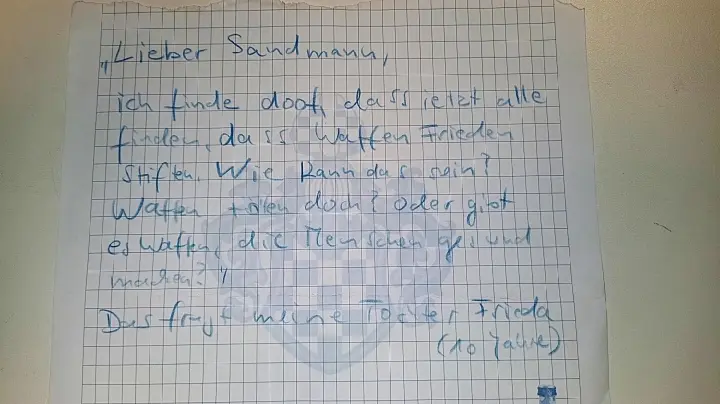 „Lieber Sandmann,
ich finde doof, dass jetzt alle
finden, dass Waffen Frieden
stiften. Wie kann das sein?
Waffen töten doch? oder gibt
es Waffen, die Menschen gesund
machen?"
Das fragt meine Tochter Frieda
(10 Jahre)